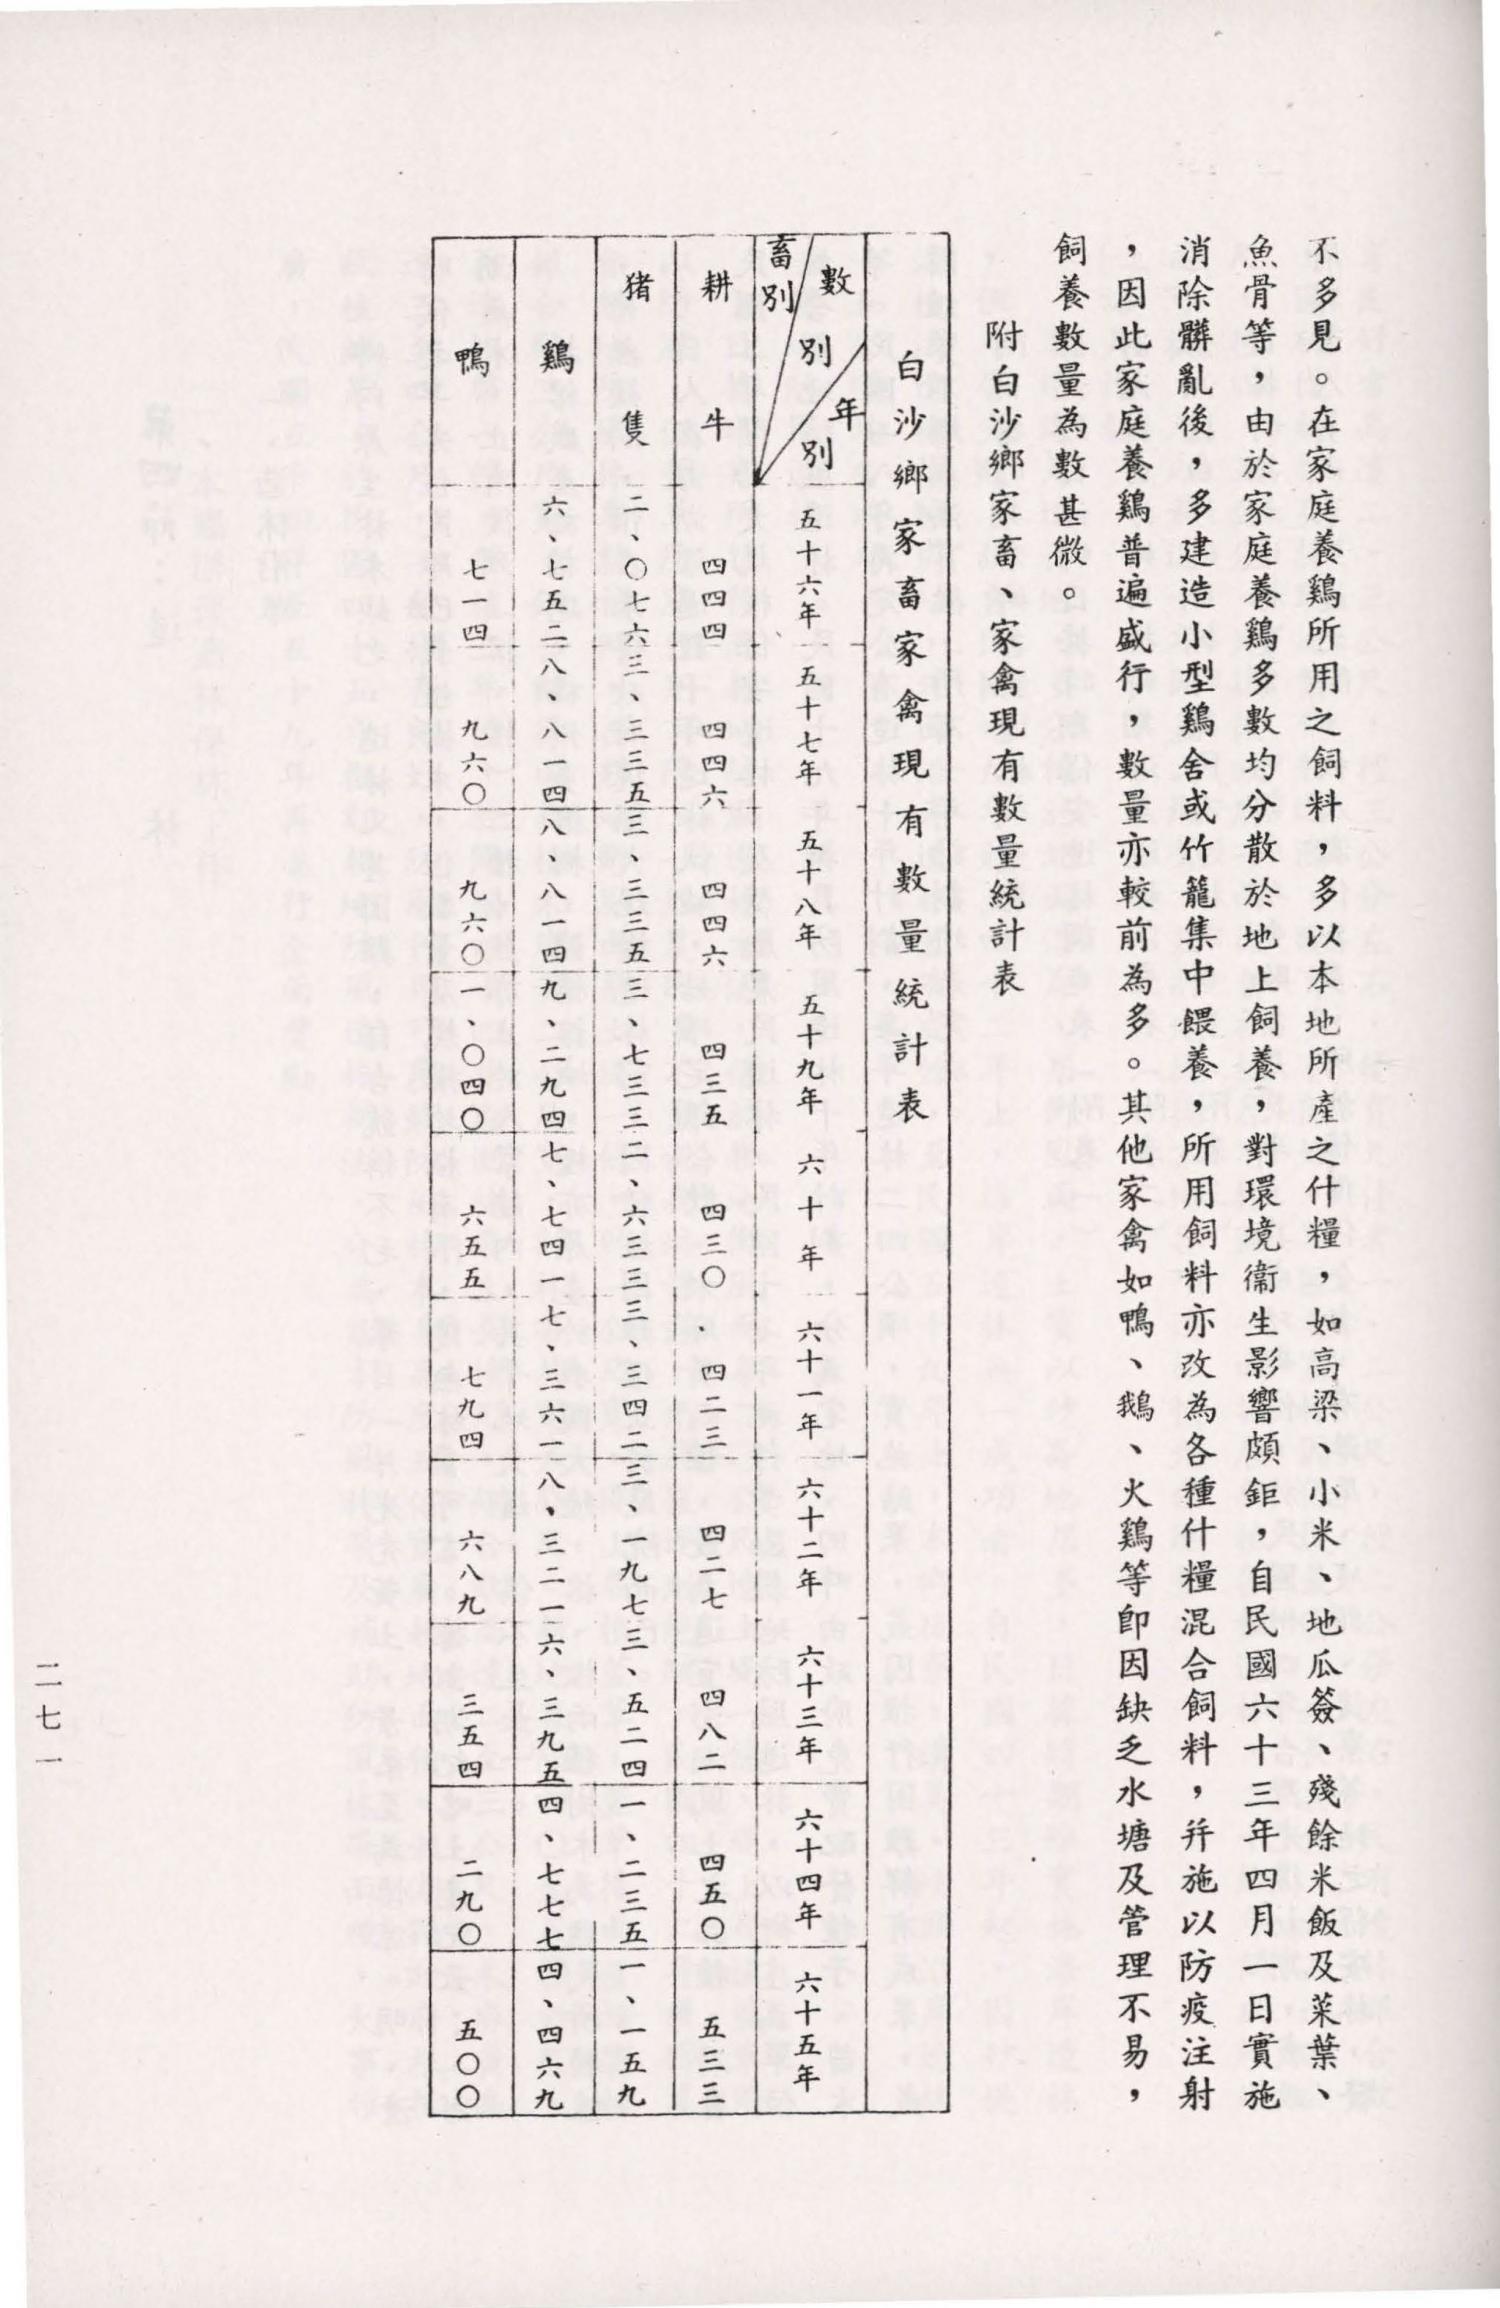 不多見。在家庭養鷄所用之飼料，多以本地所產之什糧，如高梁、小米、地瓜簽、殘餘米飯及菜葉、
魚骨等，由於家庭養鷄多數均分散於地上飼養，對環境衞生影響頗鉅，自民國六十三年四月一日實施
消除髒亂後，多建造小型鷄舍或竹籠集中餵養，所用飼料亦改為各種什糧混合飼料，幷施以防疫注射
，因此家庭養鷄普遍盛行，數量亦較前為多。其他家禽如鴨、鵝、火鷄等卽因缺乏水塘及管理不易，
飼養數量為數甚微。
附白沙鄉家畜、家禽現有數量統計表
白沙鄉家畜家禽現有數量統計表
畜別 數別 年別 五十六年 五十七年 五十八年 五十九年 六十年 六十一年 六十二年 六十三年 六十四年 六十五年
耕牛 四四四 四四六 四四六 四三五 四三〇 四二三 四二七 四八二 四五〇 五三三
猪隻 二、〇七六 三、三三五 三、三三五 三、七三三 二、六三三 三、三四二 三、一九七 三、五二四 一、二三五 一、一五九
鷄 六、七五二 八、八一四 八、八一四 九、二九四 七、七四一 七、三六一 八、三二一 六、三九五 四、七七七 四、四六九
鴨 七一四 九六〇 九六〇 一、〇四〇 六五五 七九四 六八九 三五四 二九〇 五〇〇
二七一